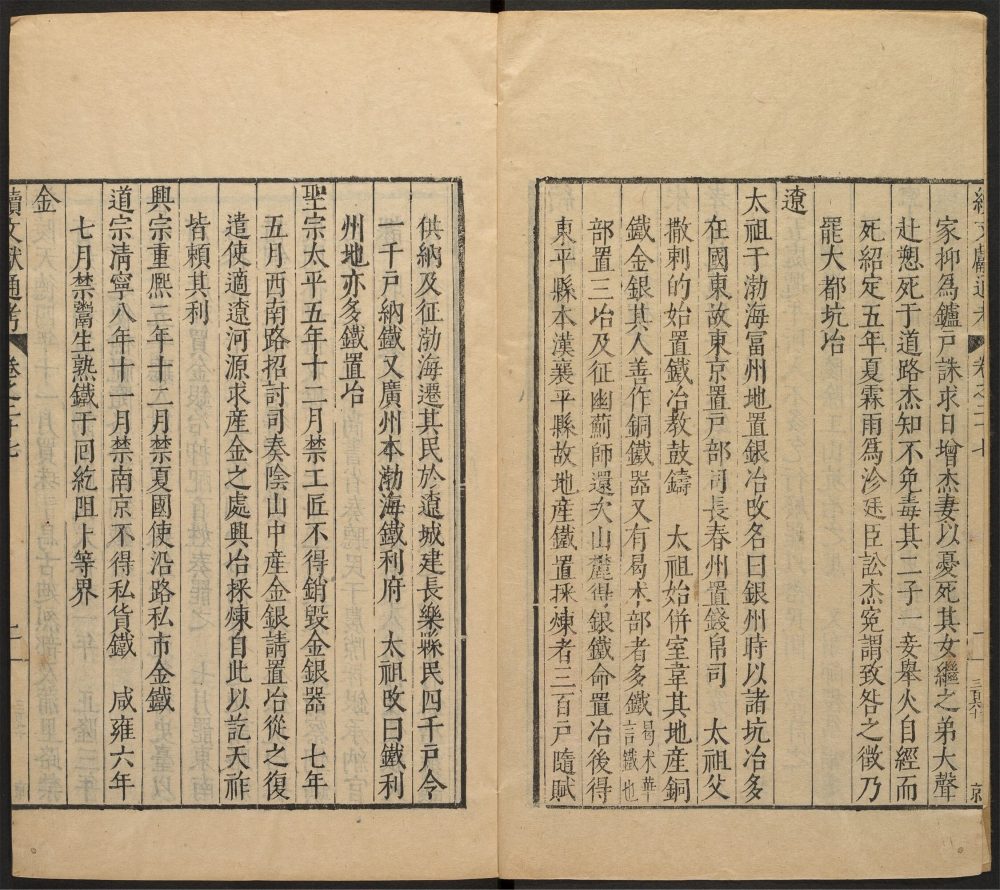 續文獻通考 卷之二十七
家抑為鑪戶誅求日增杰妻以憂死其女繼之弟大聲
赴愬死于道路杰知不免毒其二子一妾舉火自經而
死紹定五年夏霖雨為沴廷臣訟杰冤謂致咎之徵乃
罷大都坑冶
遼
太祖于渤海富州地置銀冶改名曰銀州時以諸坑冶多
在國東故東京置戶部司長春州置錢帛司 太祖父
撒剌的始置鐵冶教鼓鑄 太祖始併室韋其地產銅
鐵金銀其人善作銅鐵器又有曷朮部者多鐵曷朮華言鐵也
部置三冶及征幽薊師還次山麓得銀鐵命置冶後得
東平縣本漢襄平縣故地產鐵置採煉者三百戶隨賦
供納及征渤海遷其民於遼城建長樂縣民四千戶令
一千戶納鐵又廣州本渤海鐵利府 太祖改曰鐵利
州地亦多鐵置冶
聖宗太平五年十二月禁工匠不得銷毀金銀器 七年
五月西南路招討司奏陰山中產金銀請置冶從之復
遣使適遼河源求產金之處興冶採煉自此以訖天祚
皆賴其利
興宗重熙二年十二月禁夏國使沿路私市金鐵
道宗清寧八年十一月禁南京不得私貨鐵 咸雍六年
七月禁鬻生熟鐵于回紇阻卜等界
金
續文獻通考 卷之二十七